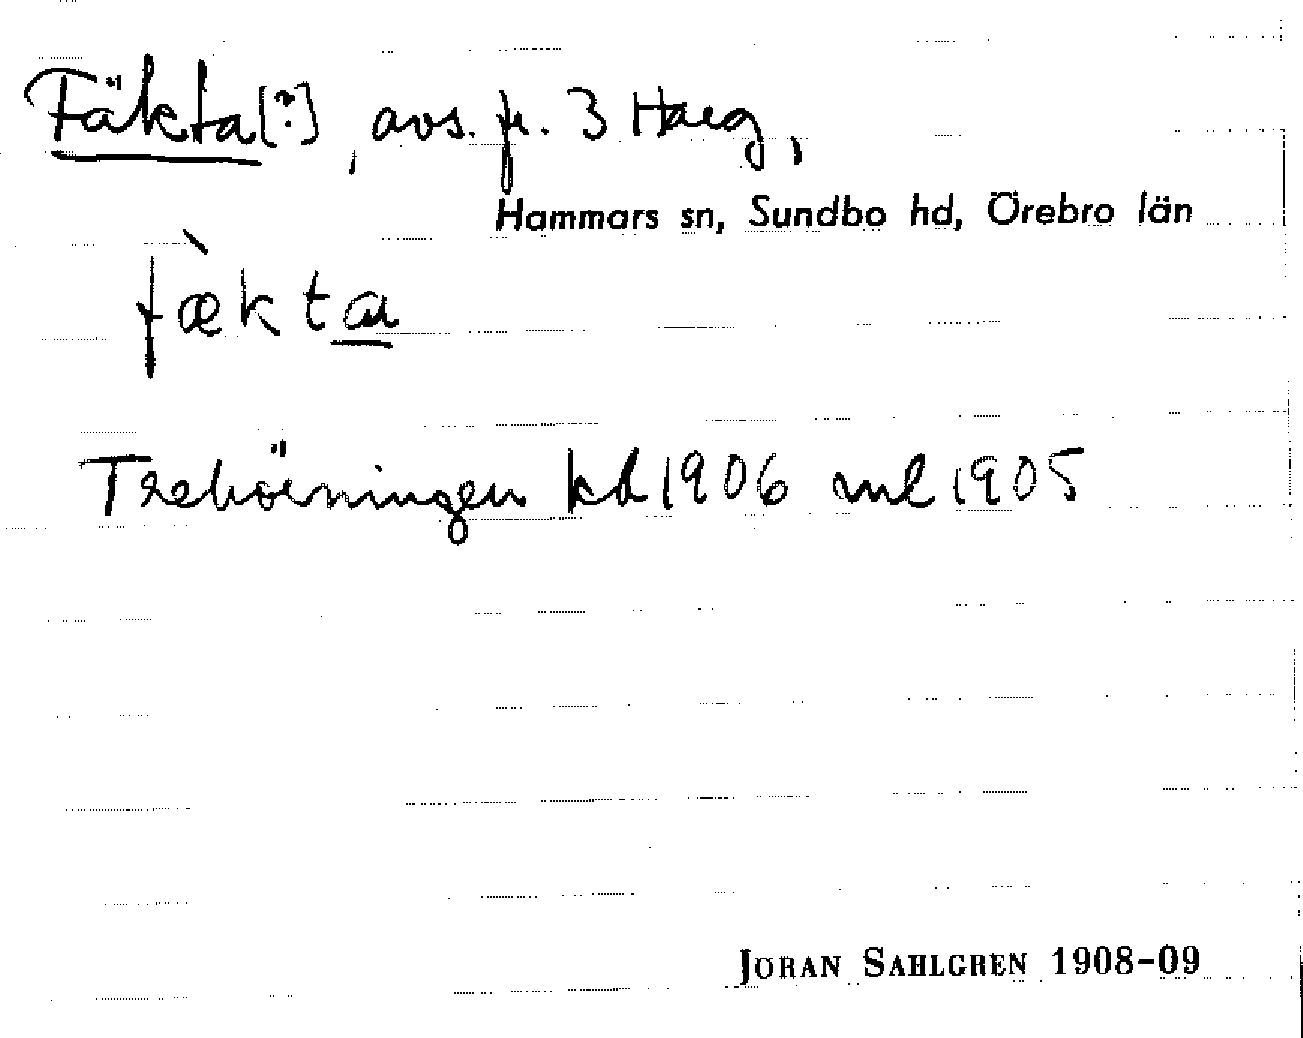 Fäkta[?], avs. fr. 3 Harg,
Hammars sn, Sundbo hd, Örebro län
fæ̀kta
Trehörningen kd 1906 ml 1905
JÖRAN SAHLGREN 1908-09